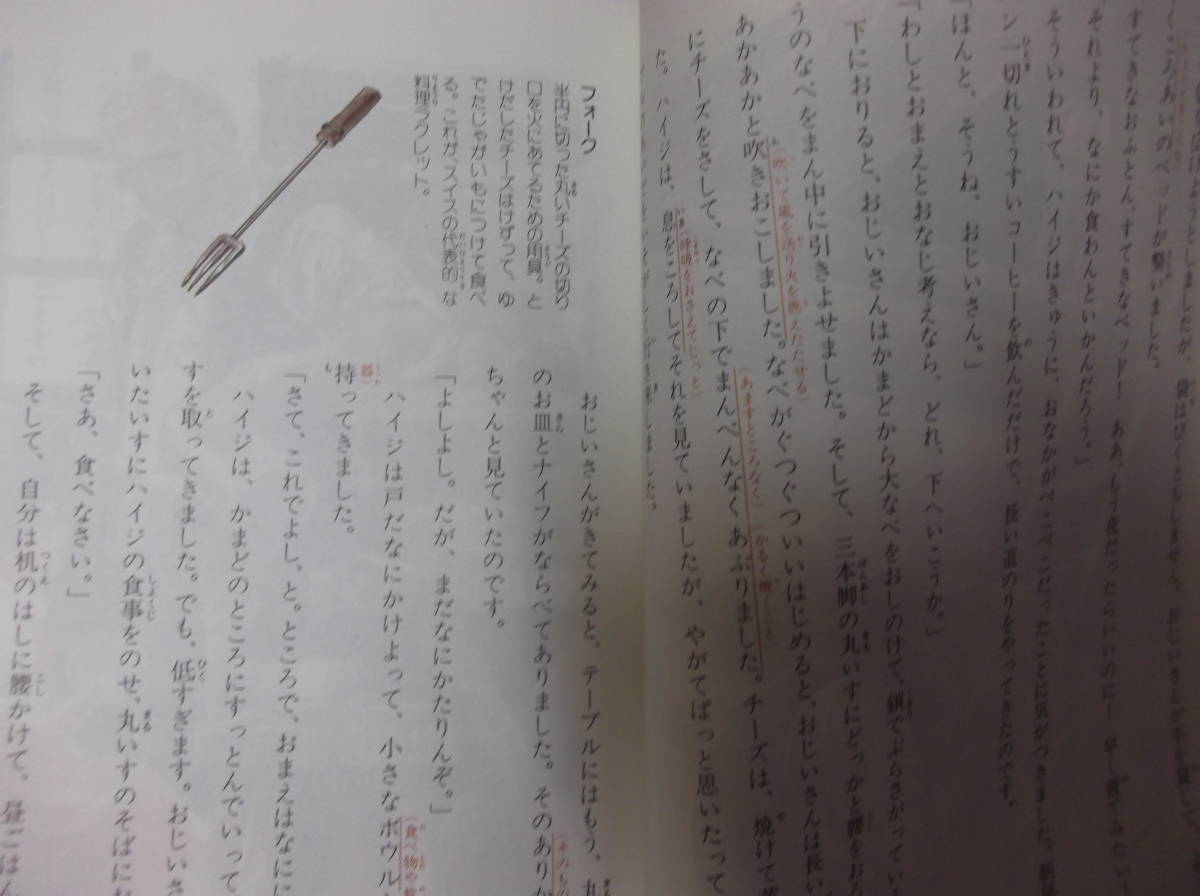 くころあいのベッドが整いました。
すてきなおふとん、すてきなベッド！　ああ、もう夜だったらいいのに！
それより、なにか食わんといかんだろう。」
そういわれて、ハイジはきゅうに、おなかがぺこぺこだったことに気がつきました。朝
ン一切れとうすいコーヒーを飲んだだけで、長い道のりをやってきたのです。
「ほんと、そうね、おじいさん。」
「わしとおまえとおなじ考えなら、どれ、下へいこうか。」
下におりると、おじいさんはかまどから大なべをおしのけて、鎖でぶらさがってい
うのなべをまん中に引きよせました。そして、三本脚の丸いすにどっかと腰をおろ
あかあかと吹きおこしました。なべがぐつぐついいはじめると、おじいさんは長い
（吹いて風を送り火を燃えたたせる）
にチーズをさして、なべの下でまんべんなくあぶりました。チーズは、焼けて黄
（あますところなく）（かるく焼くこと）
た。ハイジは、息をころしてそれを見ていましたが、やがてぱっと思いたって
（呼吸をおさえてじっと）
フォーク
半円に切った丸いチーズの切り
口を火にあてるための用具。と
けだしたチーズはけずって、ゆ
でたじゃがいもにつけて食べ
る。これが、スイスの代表的な
料理ラクレット。
おじいさんがきてみると、テーブルにはもう、丸
のお皿とナイフがならべてありました。そのありか
（そのもの
ちゃんと見ていたのです。
「よしよし。だが、まだなにかたりんぞ。」
ハイジは戸だなにかけよって、小さなボウル
（食べ物や飲
器）
持ってきました。
「さて、これでよし、と。ところで、おまえはなに
ハイジは、かまどのところにすっとんでいって
すを取ってきました。でも、低すぎます。おじいさ
いたいすにハイジの食事をのせ、丸いすのそばにお
「さあ、食べなさい。」
そして、自分は机のはしに腰かけて、昼ごはん